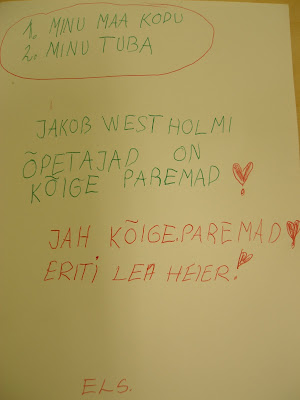 1. MINU MAA KODU
2. MINU TUBA
JAKOB WESTHOLMI
ÕPETAJAD ON
KÕIGE PAREMAD !
JAH KÕIGE.PAREMAD!
ERITI LEA HEIER!
ELS.